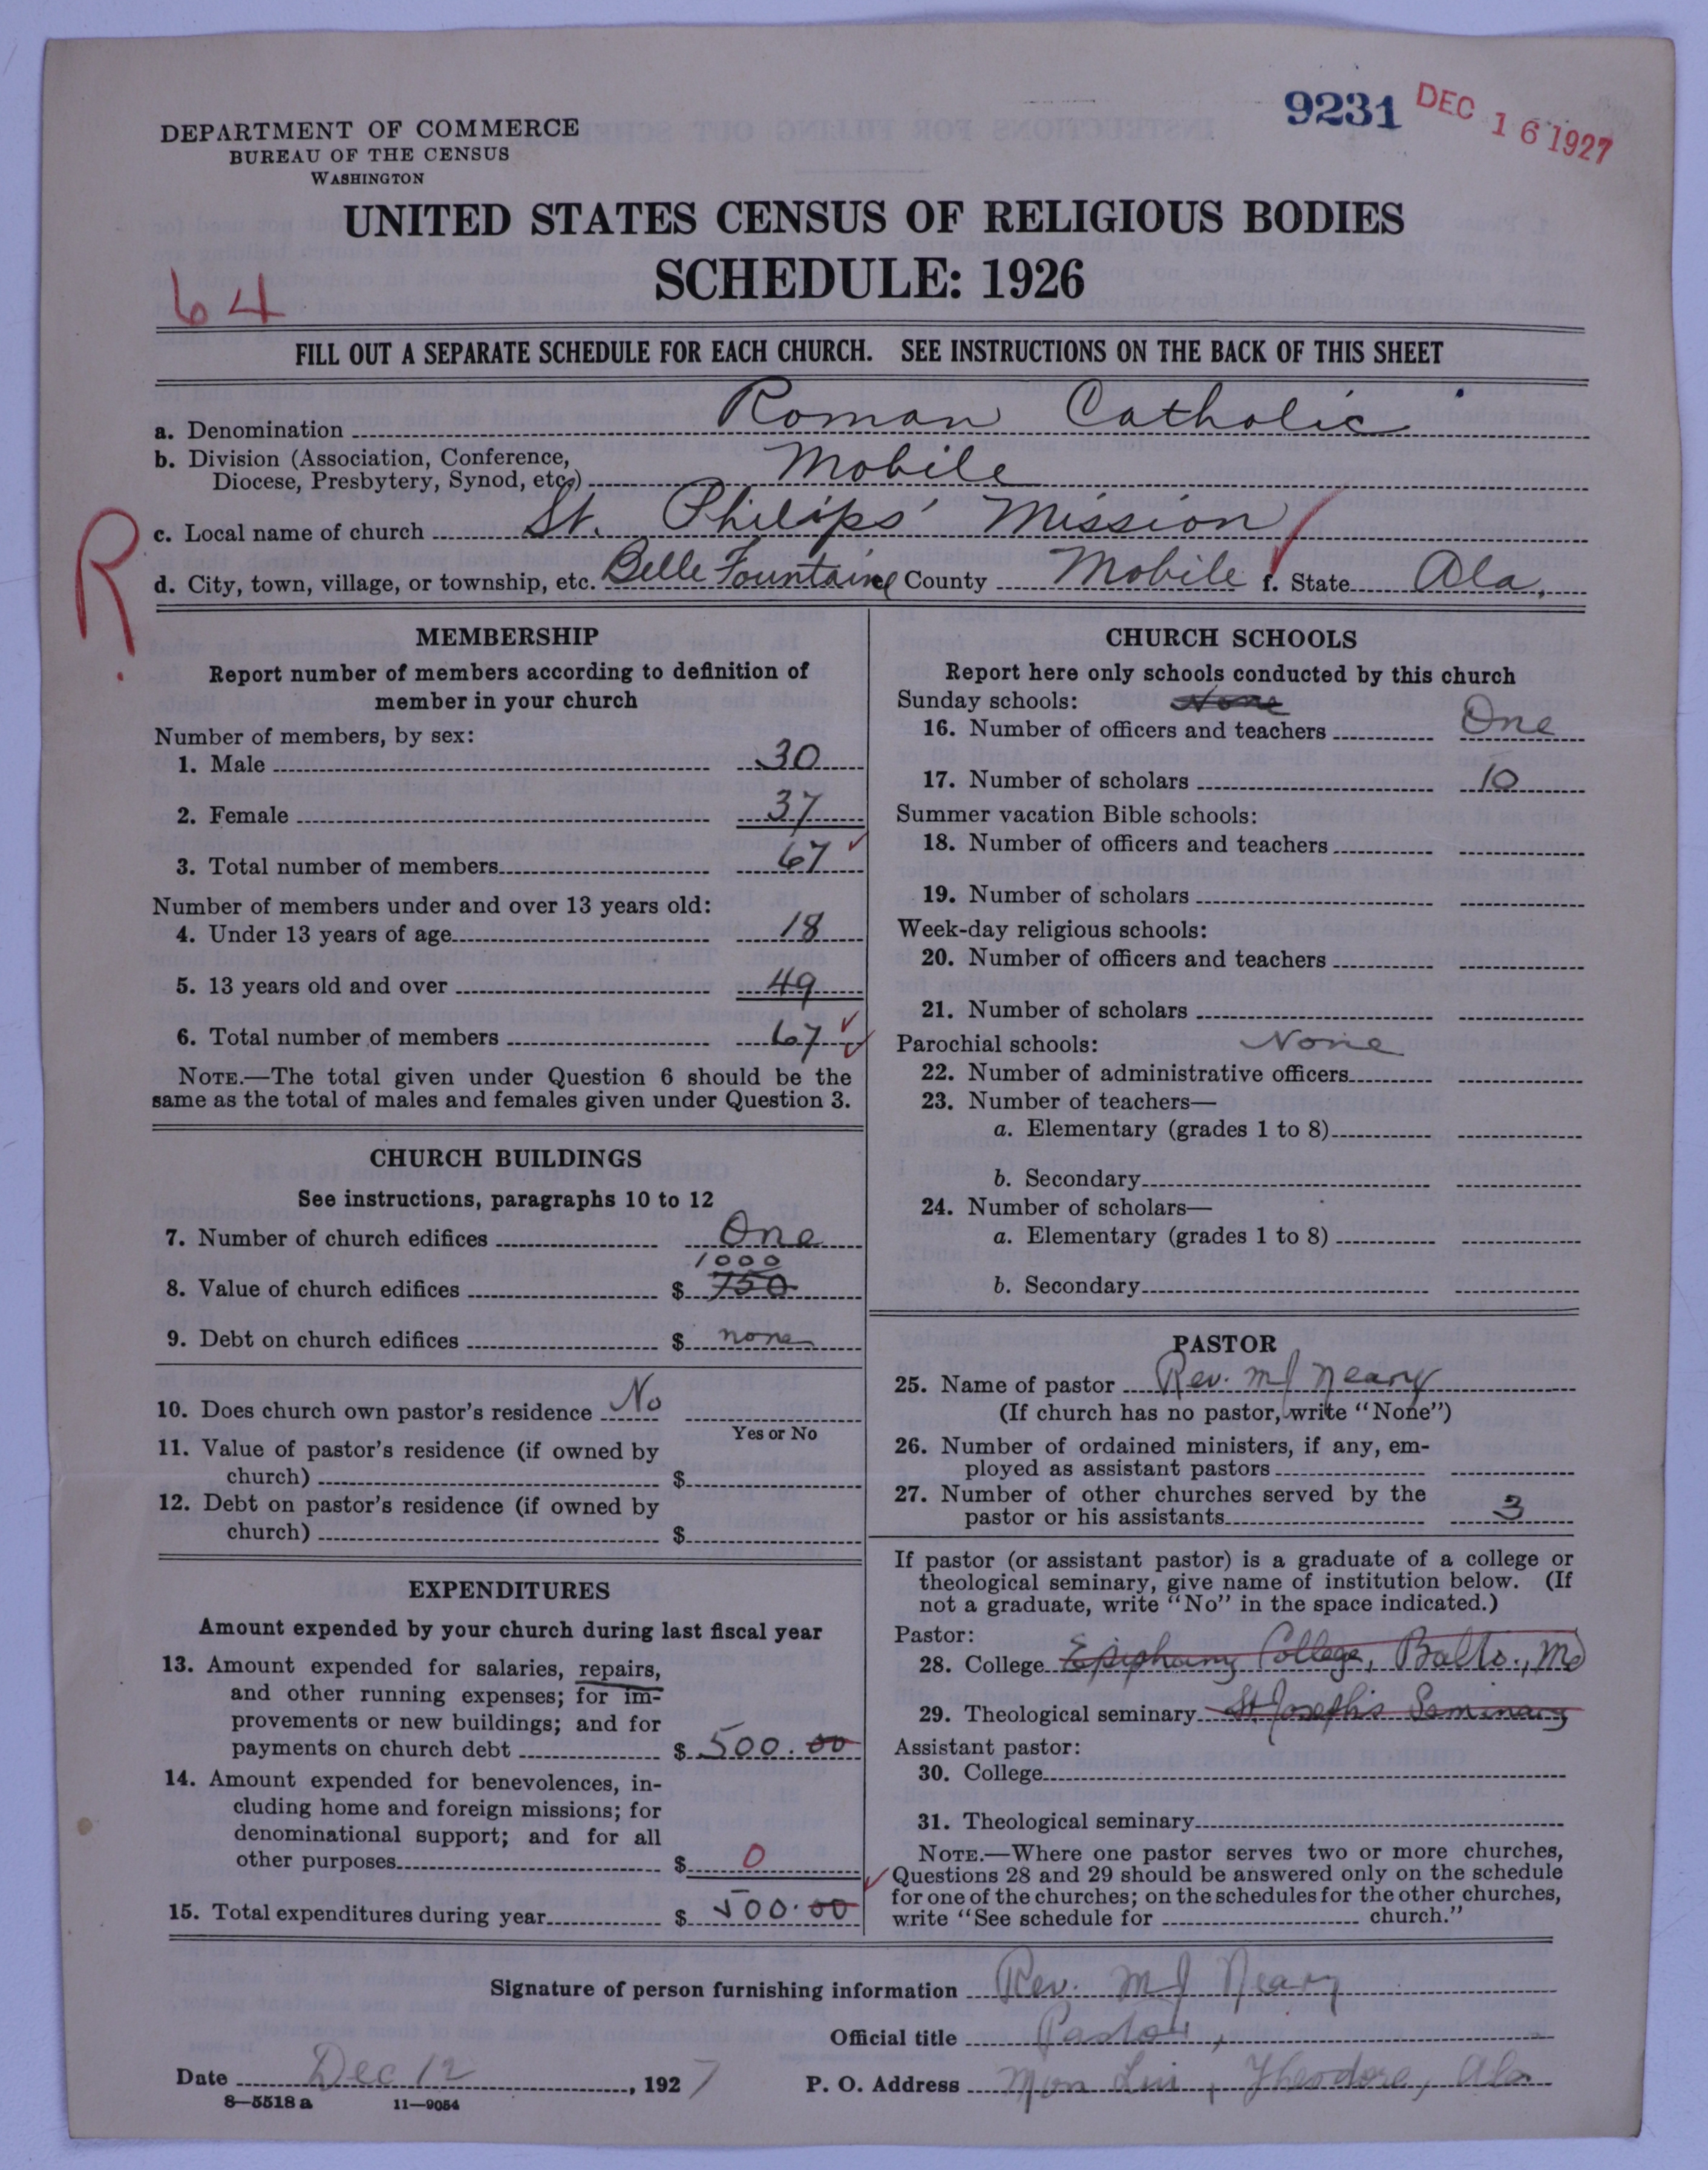 9231 DEC 16 1927
DEPARTMENT OF COMMERCE
BUREAU OF THE CENSUS
WASHINGTON
UNITED STATES CENSUS OF RELIGIOUS BODIES
SCHEDULE: 1926
64
FILL OUT A SEPARATE SCHEDULE FOR EACH CHURCH. SEE INSTRUCTIONS ON THE BACK OF THIS SHEET
a. Denomination Roman Catholic
b. Division (Association, Conference,
Diocese, Presbytery, Synod, etc.) Mobile
c. Local name of church St. Philips' Mission
R.
d. City, town, village, or township, etc. Belle Fountaine County Mobile f. State Ala.
MEMBERSHIP
Report number of members according to definition of
member in your church
Number of members, by sex:
1. Male 30
2. Female 37
3. Total number of members 67
Number of members under and over 13 years old:
4. Under 13 years of age 18
5. 13 years old and over 49
6. Total number of members 67
NOTE.—The total given under Question 6 should be the
same as the total of males and females given under Question 3.
CHURCH BUILDINGS
See instructions, paragraphs 10 to 12
7. Number of church edifices One
1000
8. Value of church edifices $ 750
9. Debt on church edifices $ none
10. Does church own pastor's residence No
Yes or No
11. Value of pastor's residence (if owned by
church) $
12. Debt on pastor's residence (if owned by
church) $
EXPENDITURES
Amount expended by your church during last fiscal year
13. Amount expended for salaries, repairs,
and other running expenses; for im-
provements or new buildings; and for
payments on church debt $ 500.00
14. Amount expended for benevolences, in-
cluding home and foreign missions; for
denominational support; and for all
other purposes $ 0
15. Total expenditures during year $ 500.00
CHURCH SCHOOLS
Report here only schools conducted by this church
Sunday schools: None
16. Number of officers and teachers One
17. Number of scholars 10
Summer vacation Bible schools:
18. Number of officers and teachers
19. Number of scholars
Week-day religious schools:
20. Number of officers and teachers
21. Number of scholars
Parochial schools: None
22. Number of administrative officers
23. Number of teachers—
a. Elementary (grades 1 to 8)
b. Secondary
24. Number of scholars—
a. Elementary (grades 1 to 8)
b. Secondary
PASTOR
25. Name of pastor Rev. M J Neary
(If church has no pastor, write "None")
26. Number of ordained ministers, if any, em-
ployed as assistant pastors
27. Number of other churches served by the
pastor or his assistants 3
If pastor (or assistant pastor) is a graduate of a college or
theological seminary, give name of institution below. (If
not a graduate, write "No" in the space indicated.)
Pastor:
28. College Epiphany College, Balto., Md
29. Theological seminary St Joseph's Seminary
Assistant pastor:
30. College
31. Theological seminary
NOTE.—Where one pastor serves two or more churches,
Questions 28 and 29 should be answered only on the schedule
for one of the churches; on the schedules for the other churches,
write "See schedule for church."
Signature of person furnishing information Rev. M J Neary
Official title Pastor,
Date Dec 12, 1927 P. O. Address Mon Lui, Theodore, Ala
8—5518 a 11—9054